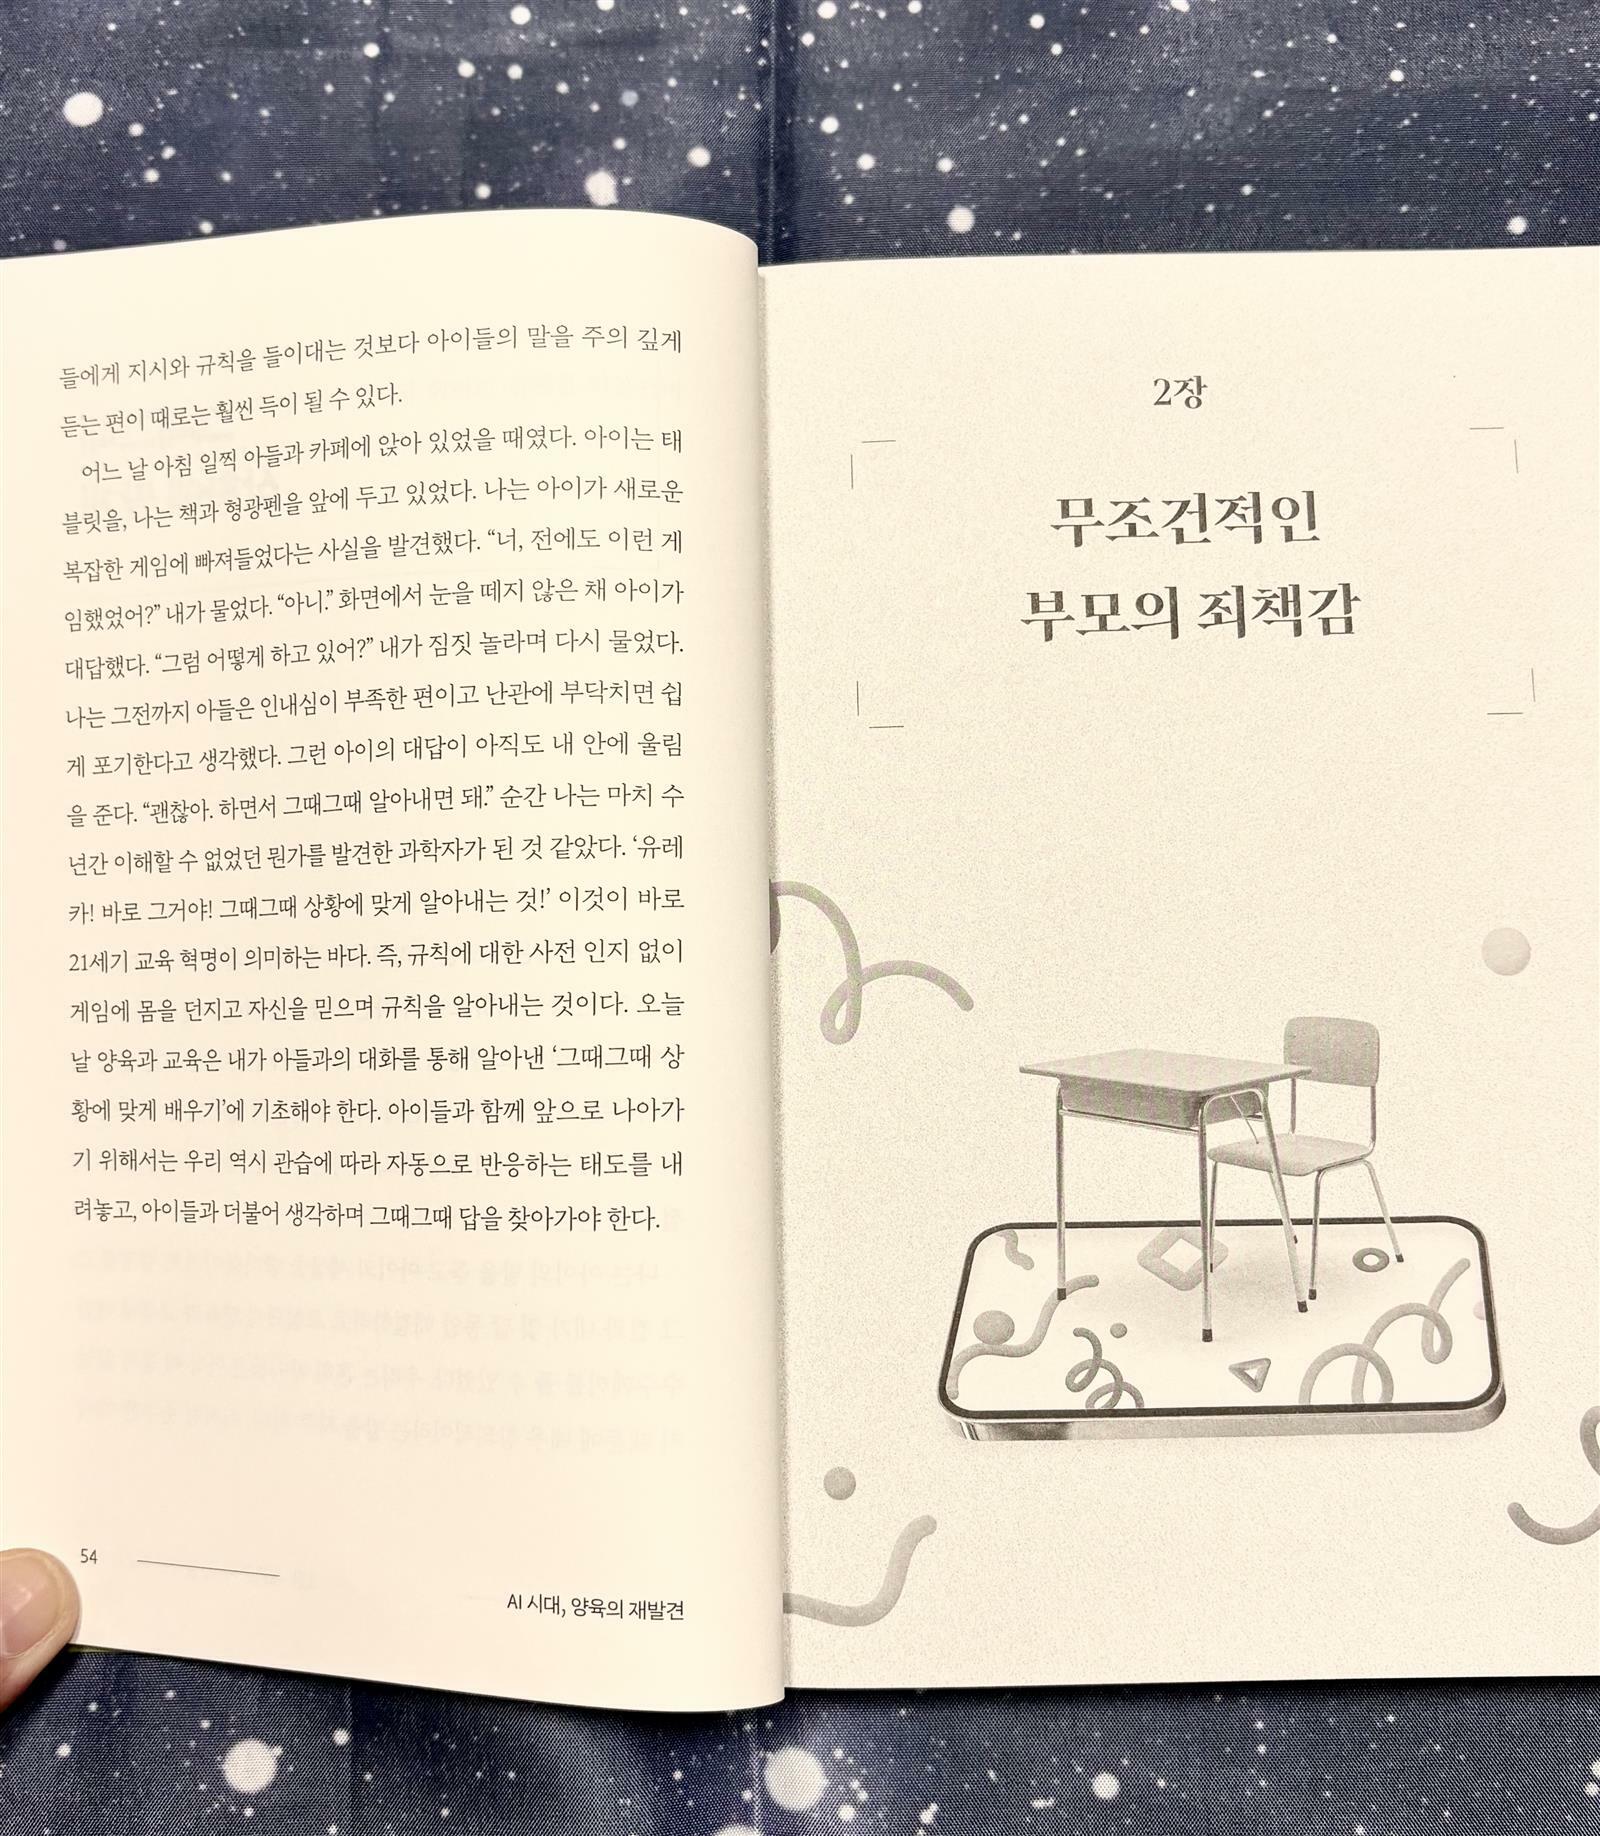 들에게 지시와 규칙을 들이대는 것보다 아이들의 말을 주의 깊게
듣는 편이 때로는 훨씬 득이 될 수 있다.
어느 날 아침 일찍 아들과 카페에 앉아 있었을 때였다. 아이는 태
블릿을, 나는 책과 형광펜을 앞에 두고 있었다. 나는 아이가 새로운
복잡한 게임에 빠져들었다는 사실을 발견했다. “너, 전에도 이런 게
임했었어?” 내가 물었다. “아니.” 화면에서 눈을 떼지 않은 채 아이가
대답했다. “그럼 어떻게 하고 있어?” 내가 짐짓 놀라며 다시 물었다.
나는 그전까지 아들은 인내심이 부족한 편이고 난관에 부닥치면 쉽
게 포기한다고 생각했다. 그런 아이의 대답이 아직도 내 안에 울림
을 준다. “괜찮아. 하면서 그때그때 알아내면 돼.” 순간 나는 마치 수
년간 이해할 수 없었던 뭔가를 발견한 과학자가 된 것 같았다. ‘유레
카! 바로 그거야! 그때그때 상황에 맞게 알아내는 것!’ 이것이 바로
21세기 교육 혁명이 의미하는 바다. 즉, 규칙에 대한 사전 인지 없이
게임에 몸을 던지고 자신을 믿으며 규칙을 알아내는 것이다. 오늘
날 양육과 교육은 내가 아들과의 대화를 통해 알아낸 ‘그때그때 상
황에 맞게 배우기’에 기초해야 한다. 아이들과 함께 앞으로 나아가
기 위해서는 우리 역시 관습에 따라 자동으로 반응하는 태도를 내
려놓고, 아이들과 더불어 생각하며 그때그때 답을 찾아가야 한다.
54
AI 시대, 양육의 재발견
2장
무조건적인
부모의 죄책감